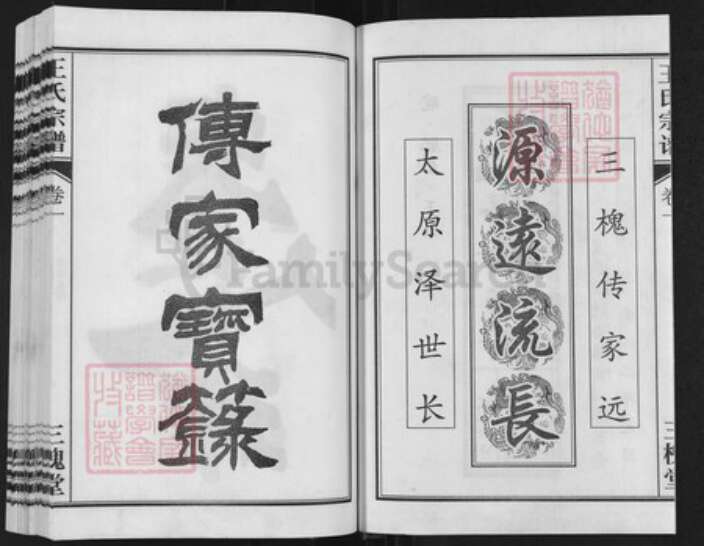 王氏宗谱
卷一
三槐堂
三槐传家远
源遠流長
太原泽世长
傳家寶籙
王氏宗谱
卷一
三槐堂
FamilySearch